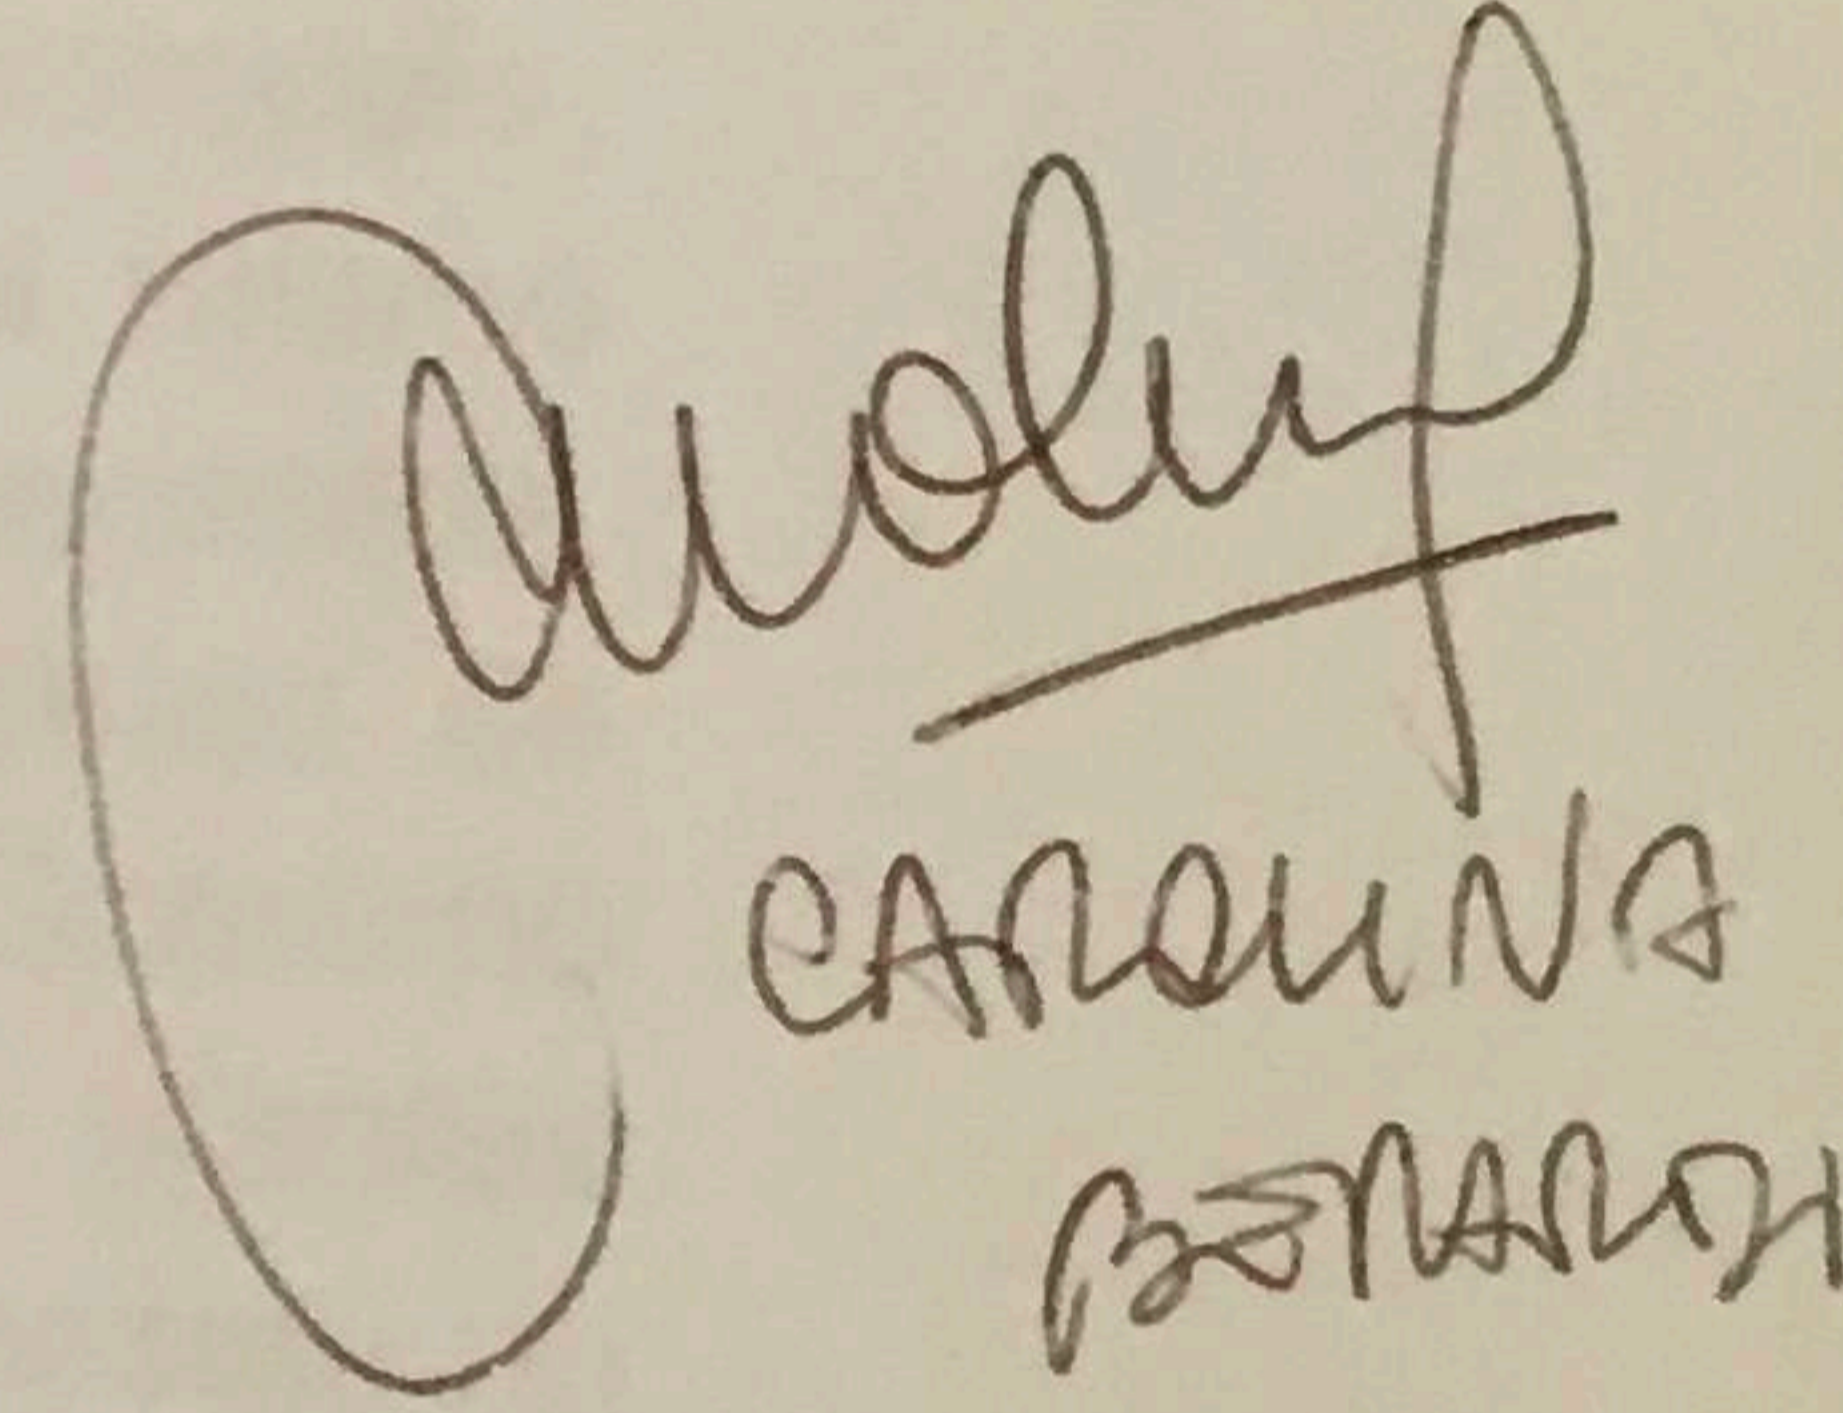 Carolina
CAROLINA
BERARDI